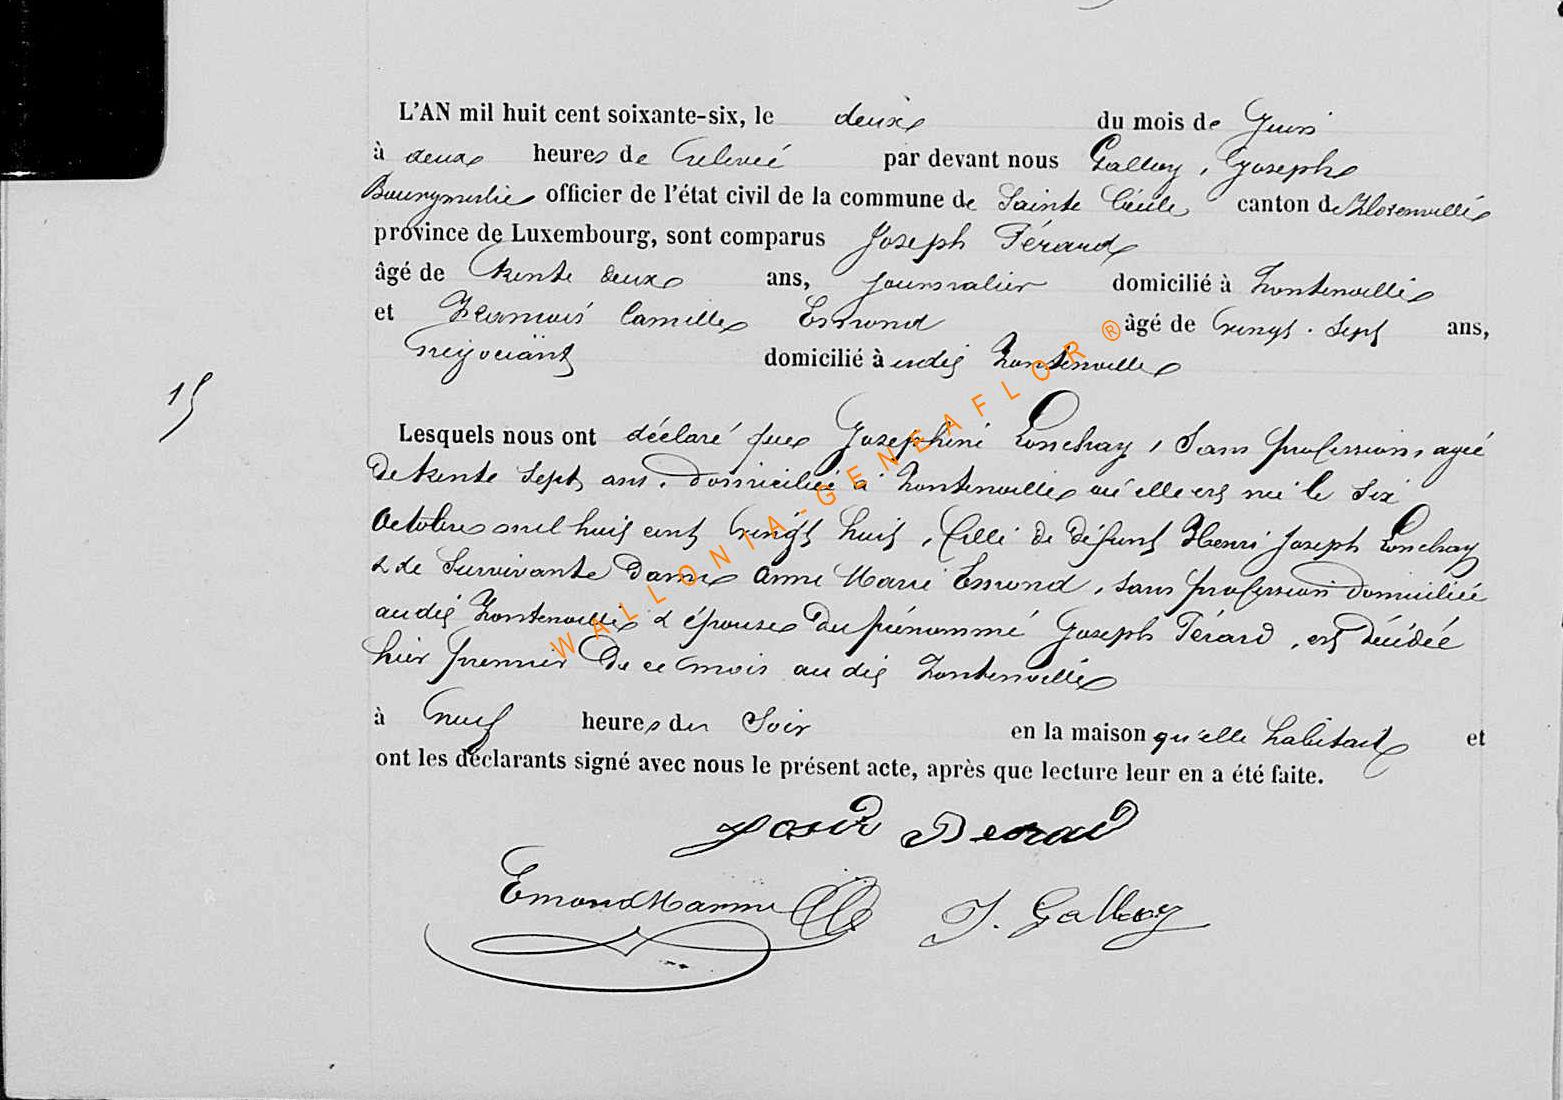 L'AN mil huit cent soixante-six, le deux du mois de Juin
à deux heures de relevée par devant nous Galloy, Joseph
Bourgmestre officier de l'état civil de la commune de Sainte Cécile canton de Florenville
province de Luxembourg, sont comparus Joseph Pérard
âgé de trente deux ans, journalier domicilié à Fontenoille
et François Camille Emond âgé de vingt-sept ans,
négociant domicilié à au dit Fontenoille
15
Lesquels nous ont déclaré que Joséphine Lonchay, sans profession, agée
de trente sept ans, domiciliée à Fontenoille où elle est née le six
Octobre mil huit cent vingt huit, fille de défunt Henri Joseph Lonchay
& de survivante Dame Anne Marie Emond, sans profession domiciliée
au dit Fontenoille & épouse du prénommé Joseph Pérard, est décédée
hier premier de ce mois au dit Fontenoille
à neuf heures du soir en la maison qu'elle habitait et
ont les déclarants signé avec nous le présent acte, après que lecture leur en a été faite.
Emond
J. Galloy
WALLONIA-GENEAFLOR®